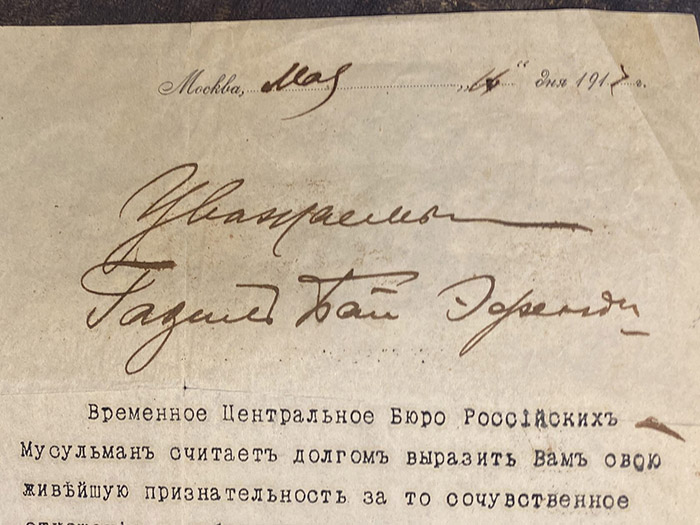 Москва, Мая „16“ дня 1917 г.
Уважаемый
Бай Эфенди
Временное Центральное Бюро Россiйскихъ
Мусульманъ считаетъ долгомъ выразить Вамъ свою
живѣйшую признательность за то сочувственное